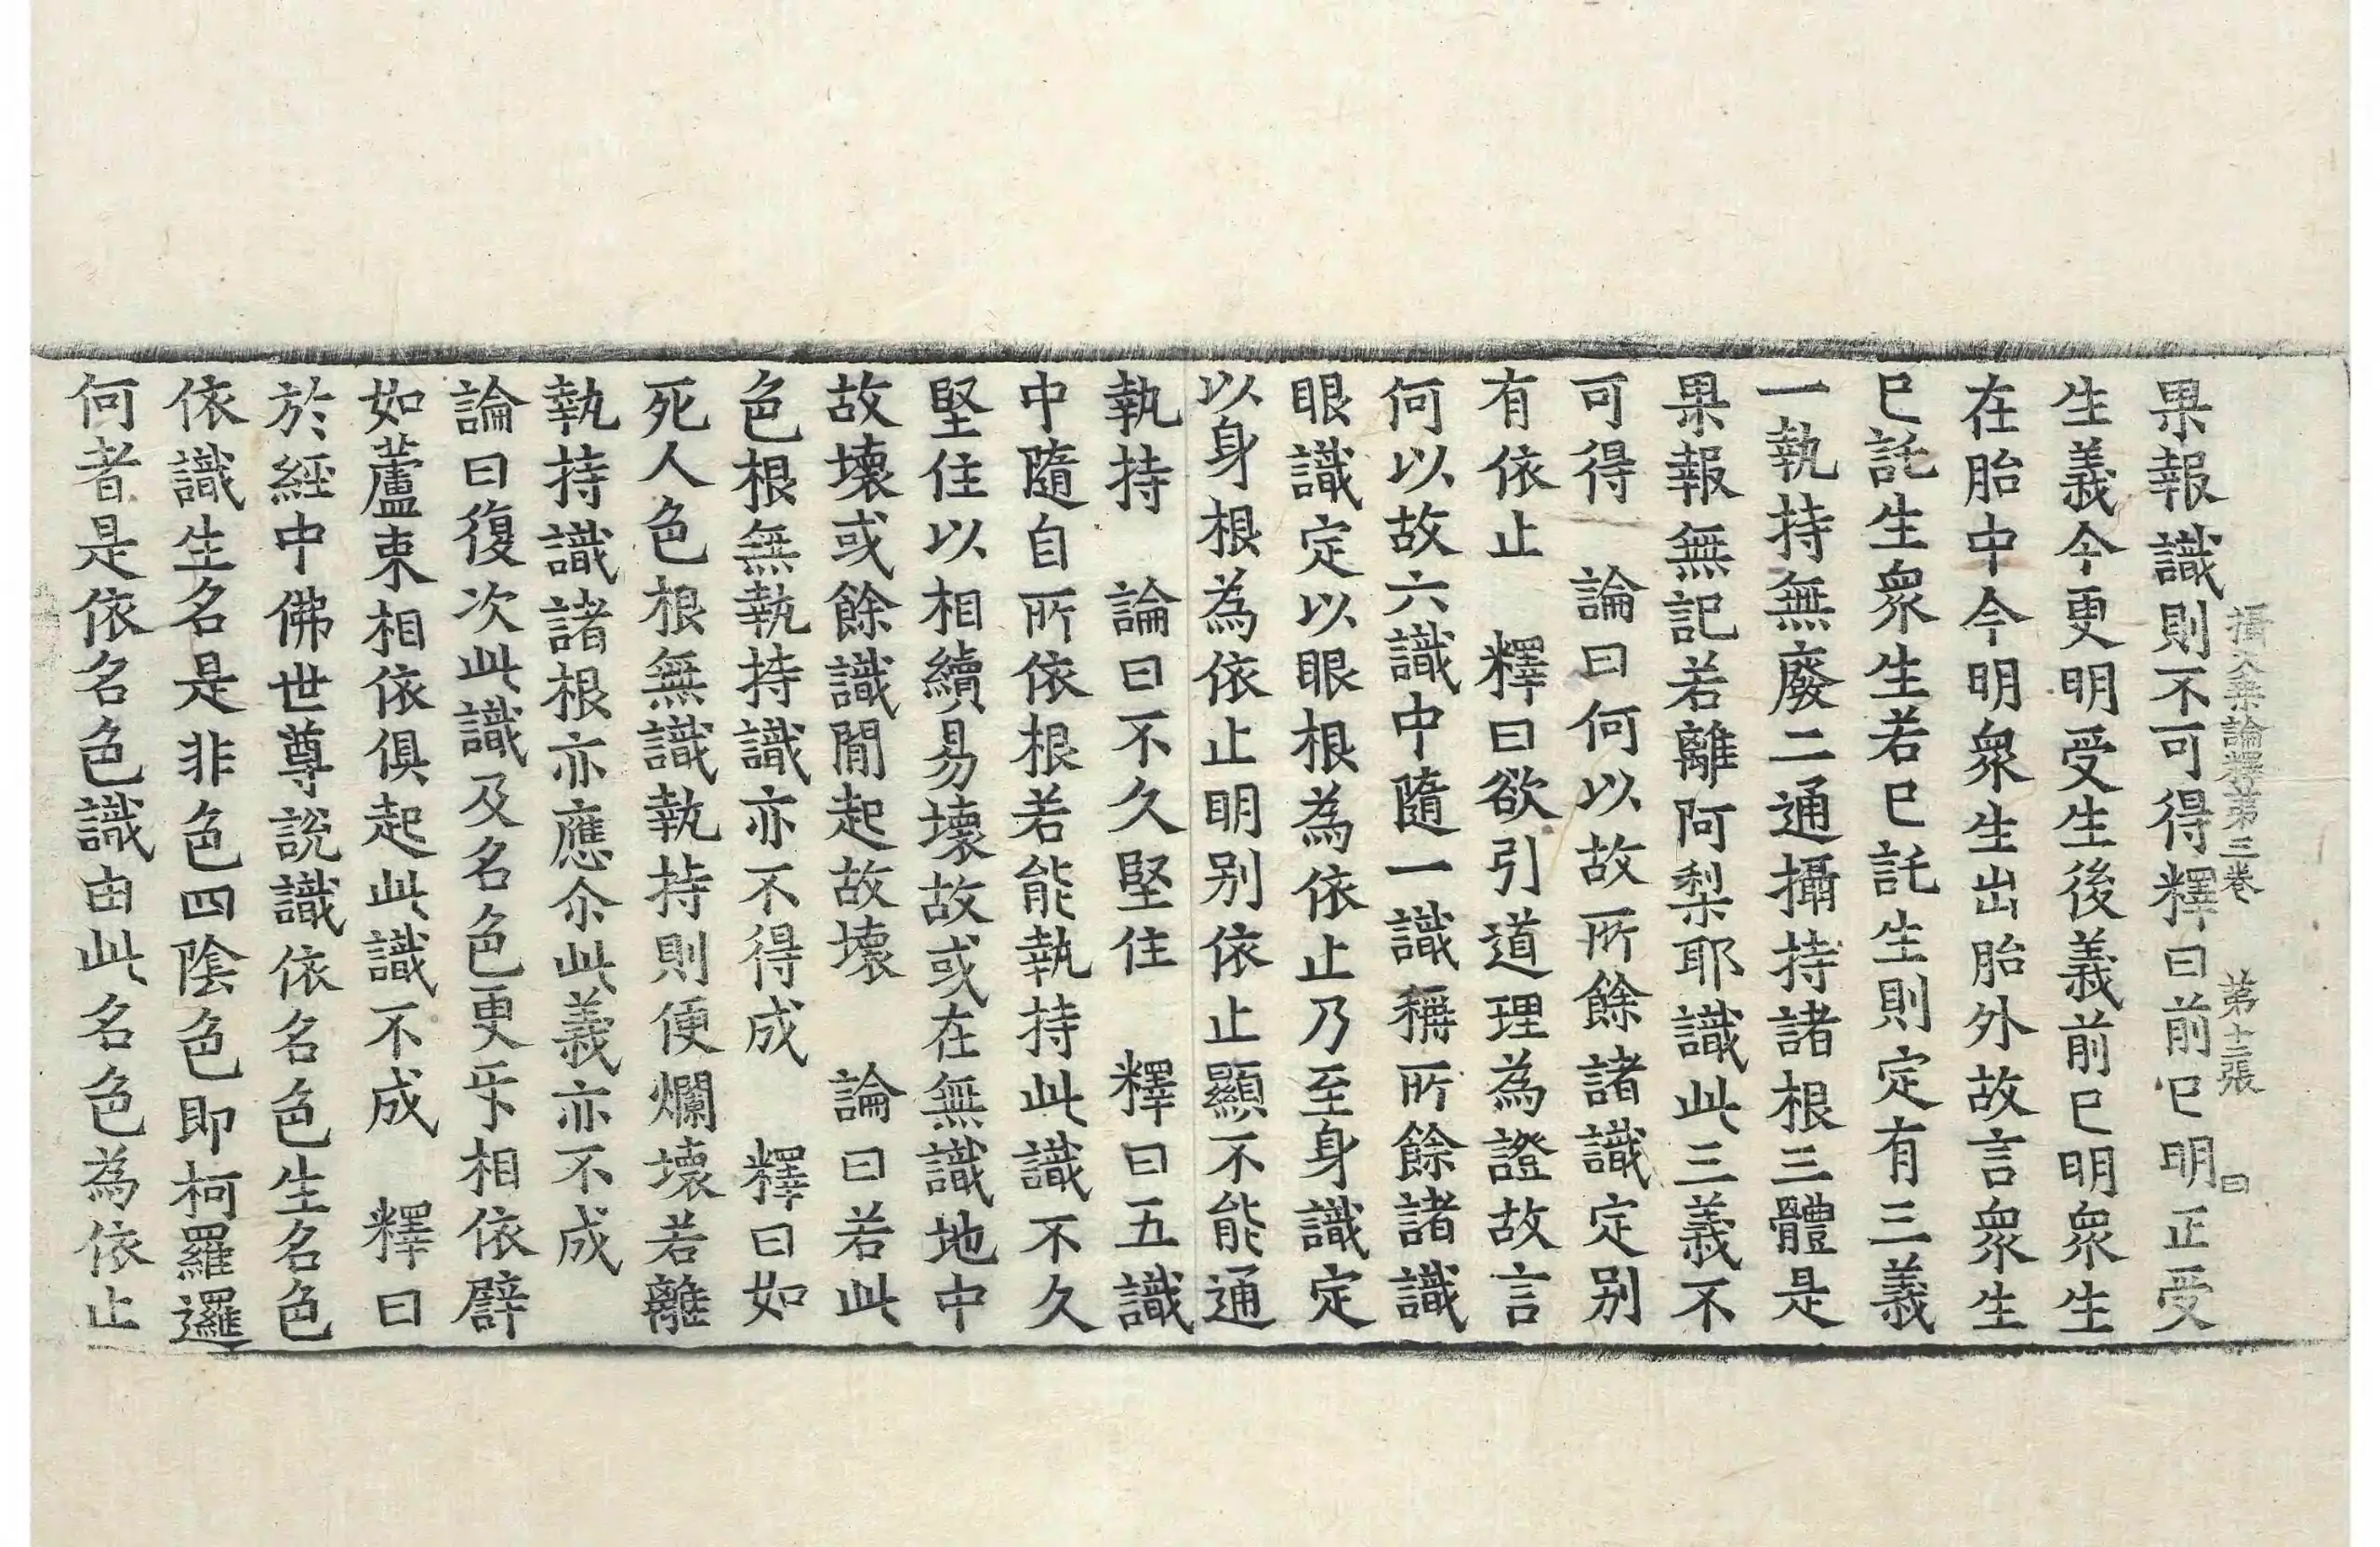 攝大乘論釋第三卷　第十二張　曰
果報識則不可得釋曰前巳明正受
生義今更明受生後義前巳明衆生
在胎中今明衆生出胎外故言衆生
巳託生衆生若巳託生則定有三義
一執持無廢二通攝持諸根三體是
果報無記若離阿梨耶識此三義不
可得　論曰何以故所餘諸識定别
有依止　釋曰欲引道理為證故言
何以故六識中隨一識稱所餘諸識
眼識定以眼根為依止乃至身識定
以身根為依止明别依止顯不能通
執持　論曰不久堅住　釋曰五識
中隨自所依根若能執持此識不久
堅住以相續易壞故或在無識地中
故壞或餘識間起故壞　論曰若此
色根無執持識亦不得成　釋曰如
死人色根無識執持則便爛壞若離
執持識諸根亦應尒此義亦不成
論曰復次此識及名色更㸦相依譬
如蘆束相依俱起此識不成　釋曰
於經中佛世尊說識依名色生名色
依識生名是非色四陰色即柯羅邏
何者是依名色識由此名色為依止